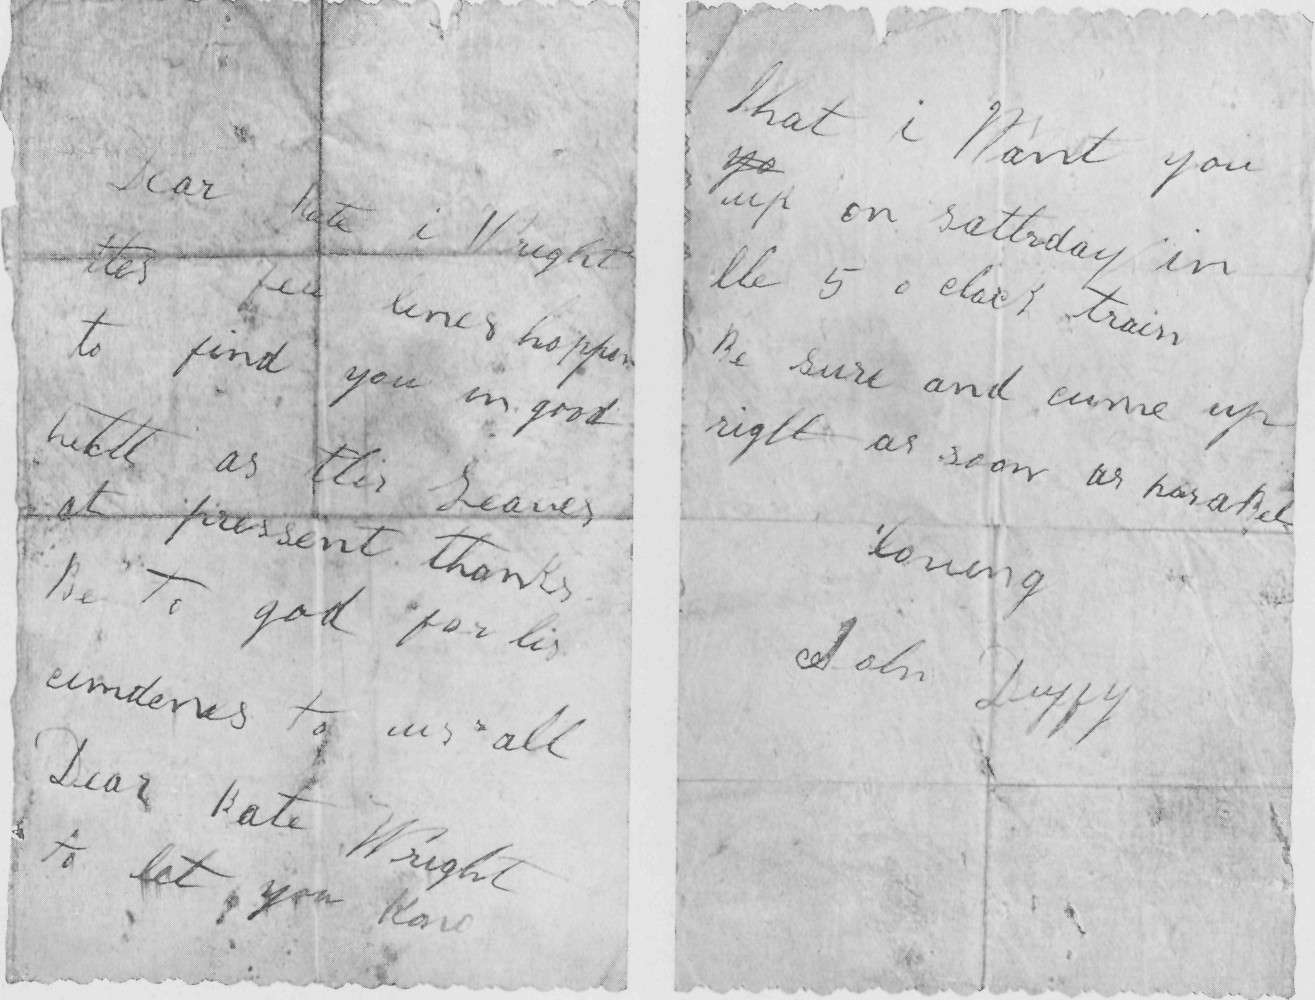 Dear Kate i Wright
ties few lines hoppen
to find you in good
heltt as this Leaves
at pressent thanks
Be to god for his
cumdenes to us all
Dear Kate Wright
to let you Kono
That i Want you
yo
up on sattrday in
the 5 o clock train
Be sure and cume up
right as soon as posabel
Loveing
John Duffy